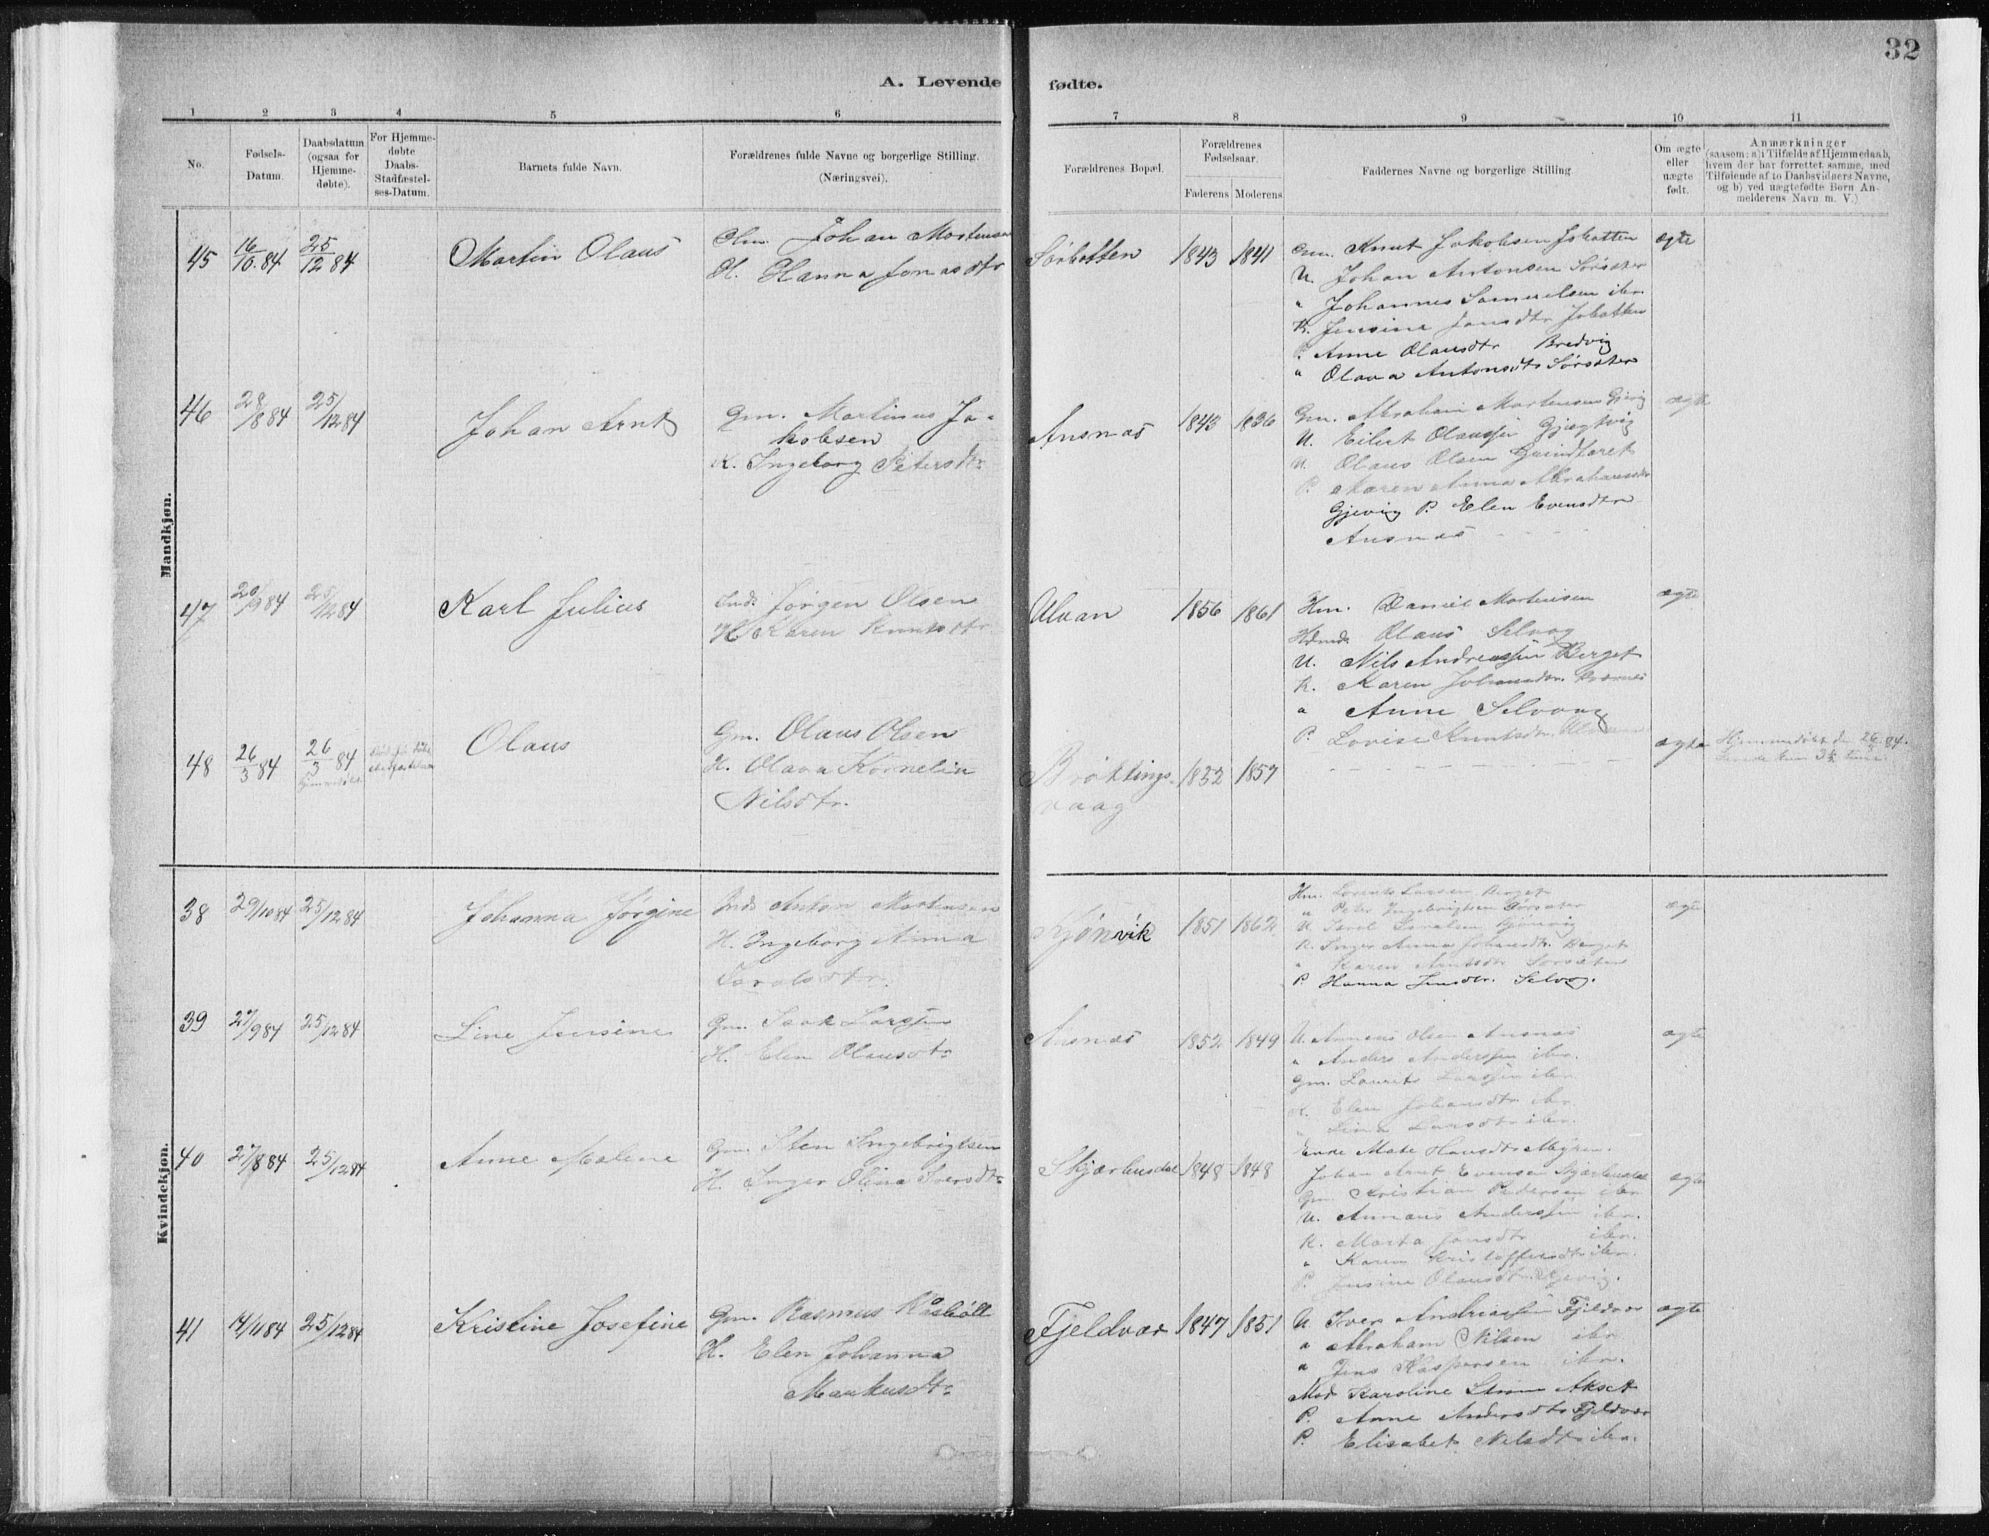 32
A. Levende fødte.
1 2 3 4 5 6 7 8 9 10 11
No.
Fødsels-
Datum.
Daabsdatum
(ogsaa for
Hjemme-
døbte).
For Hjemme-
døbte
Daabs-
Stadfæstel-
ses-Datum.
Barnets fulde Navn.
Forældrenes fulde Navne og borgerlige Stilling.
(Næringsvei).
Forældrenes Bopæl.
Forældrenes
Fødselsaar.
Faderens Moderens
Faddernes Navne og borgerlige Stilling
Om ægte
eller
uægte
født.
Anmærkninger
(saasom: a) i Tilfælde af Hjemmedaab,
hvem der har forrettet samme, med
Tilføiende af to Daabsvidners Navne,
og b) ved uægtefødte Børn An-
melderens Navn m. V.)
Mandkjøn.
45 16/10.84 25/12 84 Martin Olaus
Johan Mortensen
H. Hanna Jonasdtr
1843 1841
Knut Jakobsen
U. Johan Antonsen Sørsæter
" Johannes Samuelsen ibr.
Jensine Jonsdtr
P. Anne Olausdtr Bredvig
" Olava Antonsdtr Sørsæter
ægte
46 28/8 84 25/12 84 Johan Arnt
Gm. Martinus Ja-
kobsen
K. Ingeborg Petersdtr
Ansnæs 1843 1836
Gm. Abraham Mortensen
U. Eilert Olaussen
U. Olaus Olsen
P. Maren Anna Abrahamsdtr
Gjevig P. Elen Evensdtr
Ansnæs
ægte
47 20/9 84 25/12 84 Karl Julius
Inds. Jørgen Olsen
H. Karen Knutsdtr
Ulvan 1856 1861
Hm. Daniel Mortensen
Olaus Selvog
U. Nils Andreassen Berget
K. Karen
" Anne Selvaag
P. Lovise Knutsdtr. Ulvan
ægte
48 26/3 84 26/3 84 Olaus
Gm. Olaus Olsen
H. Olava Kornelia
Nilsdtr.
Brøttings-
vaag
1832 1857
ægte
Hjemmedøbt d. 26/3 84.
Kvindekjøn.
38 29/10 84 25/12 84 Johanna Jørgine
Inds. Anton Mortensen
H. Ingeborg Anna
Taralsdtr.
Gjønvik 1851 1862
Hm. Lorents Larsen Berget
" Peter Ingebrigtsen Sørsæter
K. Inger Anna Johansdtr. Berget
" Karen Arntsdtr Sørsæter
P. Hanna Jensdtr. Selvog.
ægte
39 27/9 84 25/12 84 Line Jensine
Gm. Isak Larssen
H. Elen Olausdtr
Ansnæs 1852 1849
U. Annæus Olsen Ansnæs
" Anders Anderssen ibr.
Gm. Laurits Larssen ibr
K. Elen Johansdtr ibr
" Lina Larsdtr ibr.
ægte
40 27/8 84 25/12 84 Anne Malene
Gm. Sten Ingebrigtsen
H. Inger Olina Iversdtr
Skjærhusdal 1848 1848
Enke Mate Hansdtr
Johan Arnt Evensen
Gm. Kristian Pedersen ibr
U. Annæus Anderssen ibr.
K. Marta Jonsdtr ibr.
" Karen Kristoffersdtr ibr.
P. Jensine Olausdtr. Gjevig.
ægte
41 14/11 84 25/12 84 Kristine Josefine
Gm. Rasmus
H. Elen Johanna
Markusdtr
Fjeldvær 1847 1851
U. Iver Andreassen Fjeldvær
" Abraham Nilsen ibr
" Jens Kaspersen ibr.
Mad. Karoline Strøm Akset
P. Anne Andersdtr Fjeldvær
P. Elisabet Nilsdtr ibr.
ægte